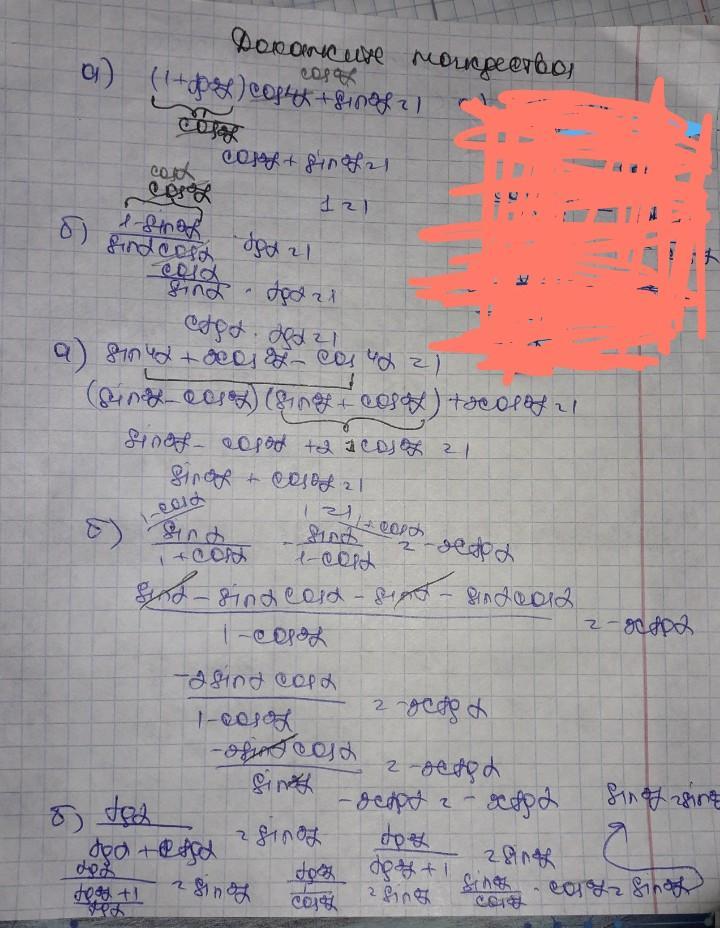 Докажите тождества
а) (1+tg²α)cos⁴α + sin²α = 1
cos²α
cos²α + sin²α = 1
1 = 1
cos²α
б) 1-sin²α / sinα cosα · tgα = 1
cosα / sinα · tgα = 1
ctgα · tgα = 1
а) sin⁴α + 2cos²α - cos⁴α = 1
(sin²α - cos²α)(sin²α + cos²α) + 2cos²α = 1
sin²α - cos²α + 2cos²α = 1
sin²α + cos²α = 1
1 = 1
б) sinα / 1+cosα - sinα / 1-cosα = -2ctgα
1-cosα 1+cosα
sinα - sinα cosα - sinα - sinα cosα / 1-cos²α = -2ctgα
-2sinα cosα / 1-cos²α = -2ctgα
-2sinα cosα / sin²α = -2ctgα
-2ctgα = -2ctgα
б) tgα / tgα + ctgα = sin²α tg²α / tg²α + 1 = sin²α sin²α = sin²α
tgα / tg²α + 1 / tgα = sin²α tg²α / cos²α = sin²α sin²α / cos²α · cos²α = sin²α